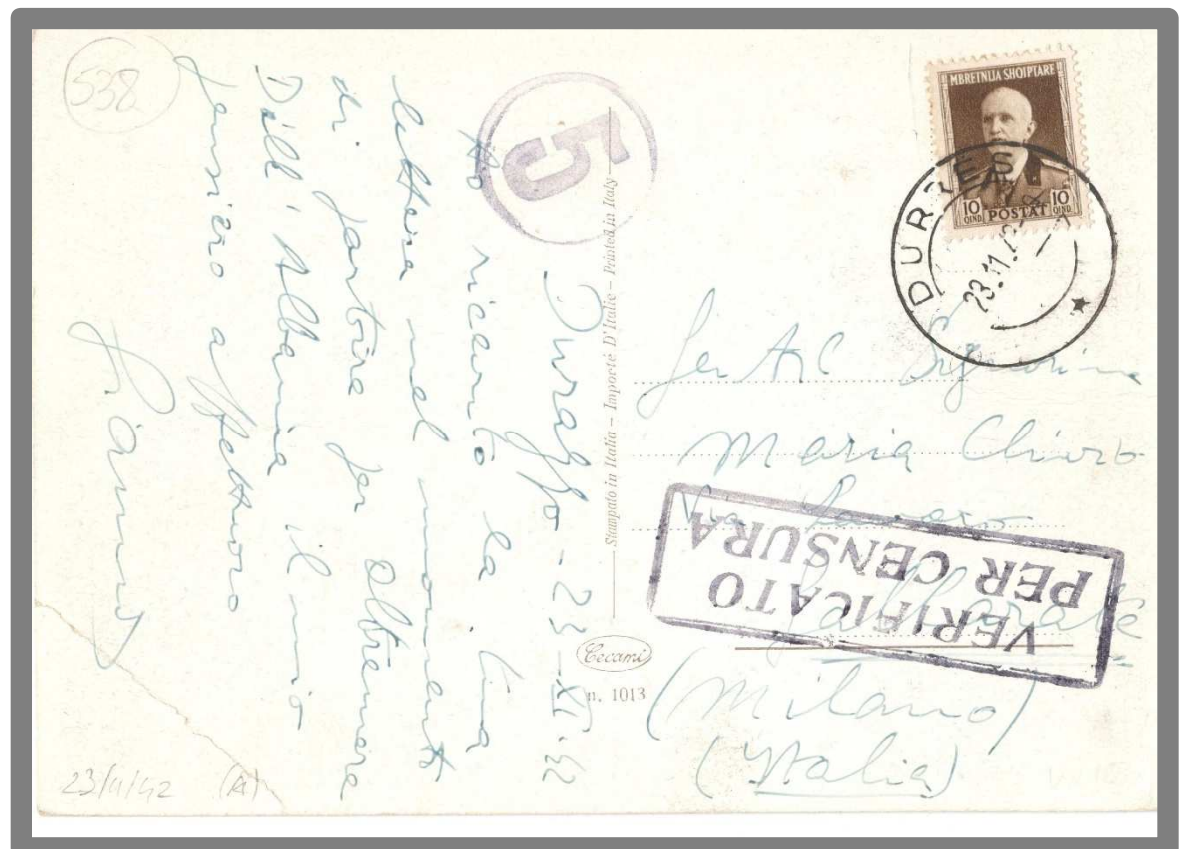 538
Durazzo - 23-XI-42
Ho ricevuto la tua
lettera nel momento
di partire per oltremare
Dall'Albania il mio
pensiero affettuoso
23/11/42 (A)
Stampato in Italia – Importé D'Italie – Printed in Italy
Cecami
n. 1013
MBRETNIJA SHQIPTARE
10 QIND POSTAT 10 QIND
DURRES
23.11.
Gent.l Signorina
Maria
Via
Gallarate
(Milano)
(Italia)
VERIFICATO
PER CENSURA